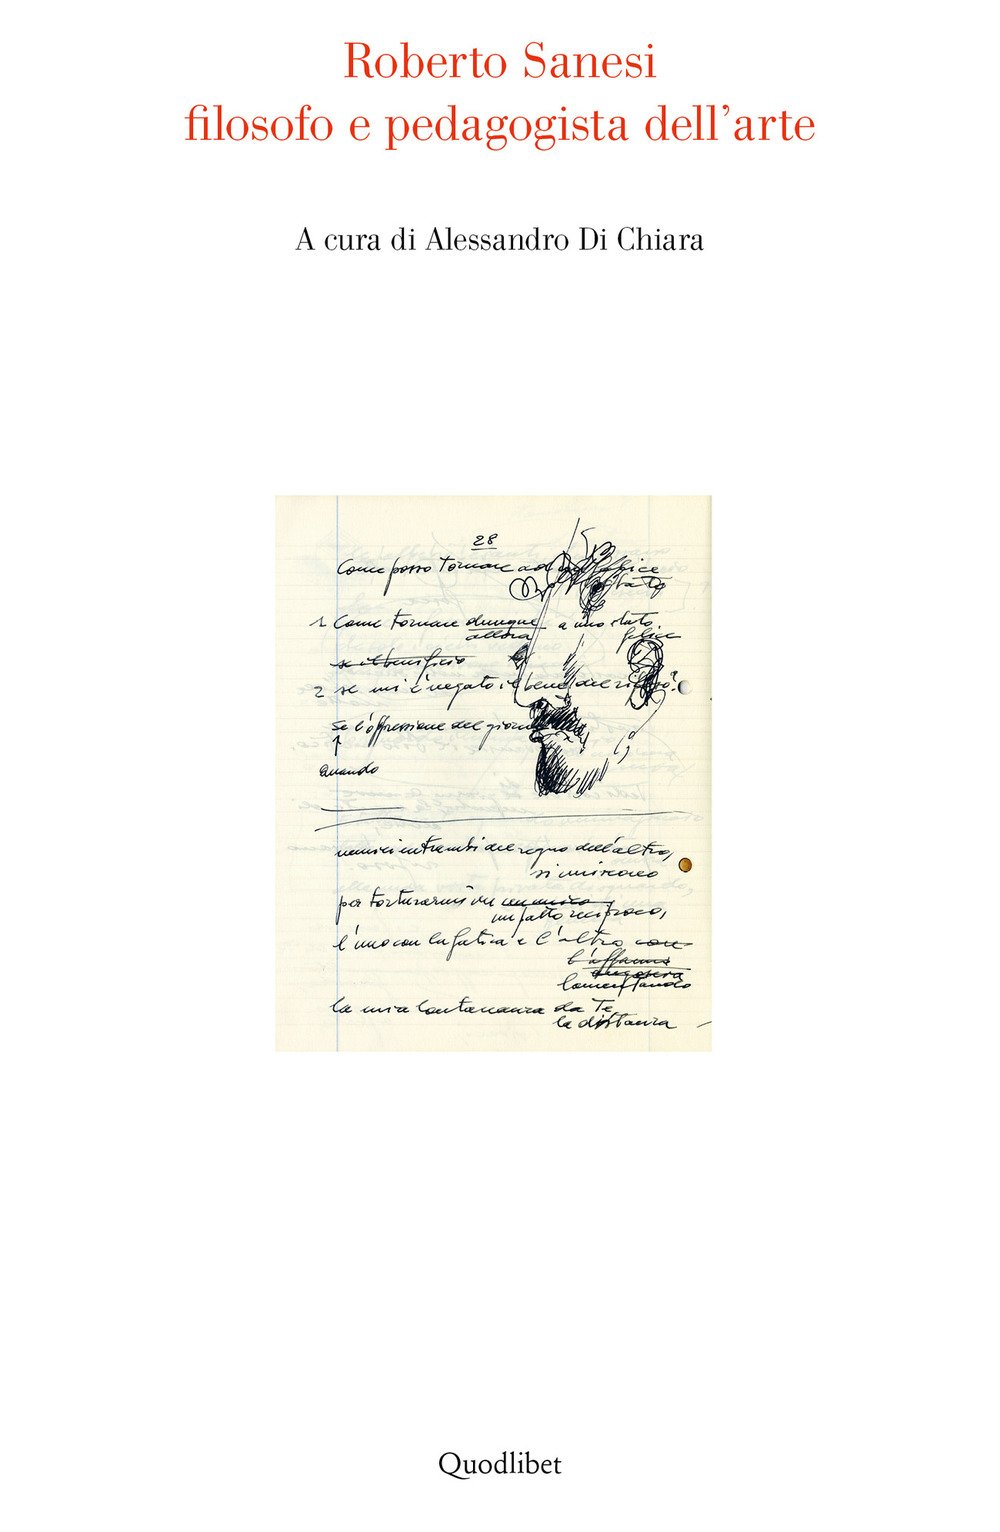 Roberto Sanesi
filosofo e pedagogista dell’arte
A cura di Alessandro Di Chiara
28
Come posso tornare ad uno felice
stato
1 Come tornare dunque a uno stato
allora felice
se il beneficio
2 se mi è negato il bene del riposo?
Se l'oppressione del giorno
Quando
nemici entrambi del regno dell'altro,
si uniscono
per torturarmi in
un patto reciproco,
l'uno con la fatica e l'altro con
l'affanno
lamentando
la mia lontananza da Te
la distanza
Quodlibet